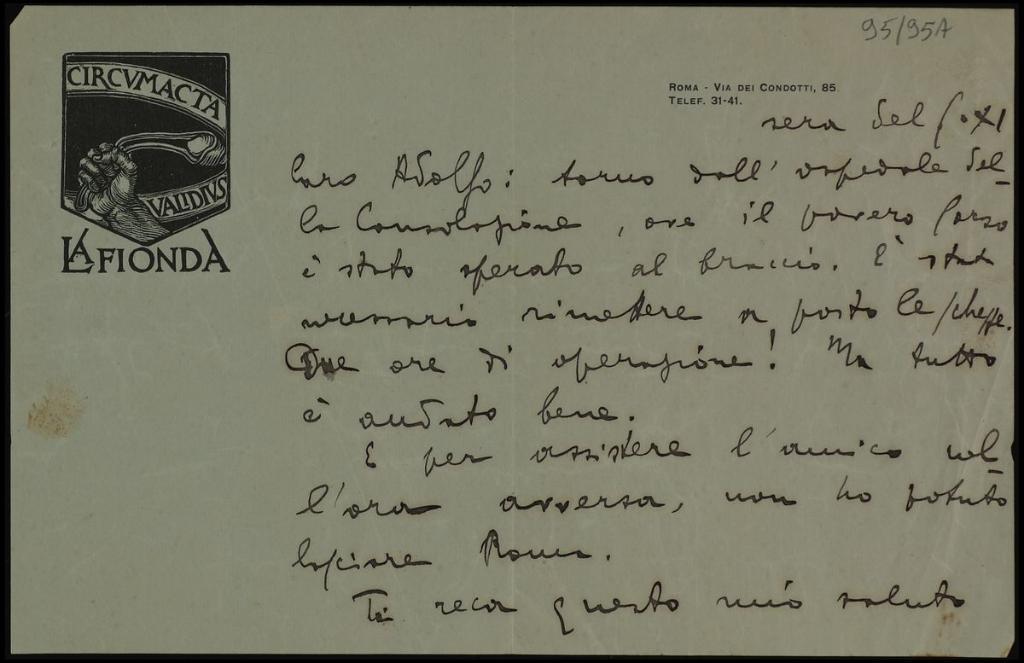 95/95A
CIRCVMACTA
VALIDIVS
LA FIONDA
ROMA - VIA DEI CONDOTTI, 85
TELEF. 31-41.
sera del XI
Caro Adolfo: torno dall' ospedale del-
la Consolazione, ove il povero Corso
è stato operato al braccio. È stato
necessario rimettere a posto le schegge.
Due ore di operazione! Ma tutto
è andato bene.
E per assistere l'amico nel-
l'ora avversa, non ho potuto
lasciare Roma.
Ti reca questo mio saluto